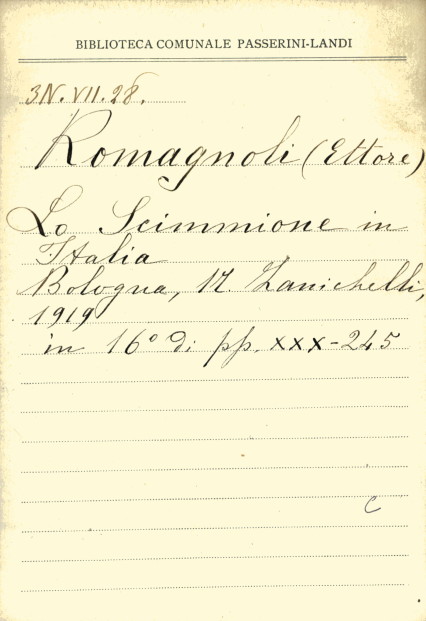 BIBLIOTECA COMUNALE PASSERINI-LANDI
3N.VII.28.
Romagnoli (Ettore)
Lo Scimmione in
Italia
Bologna, N. Zanichelli,
1919
in 16° di pp. XXX-245
C